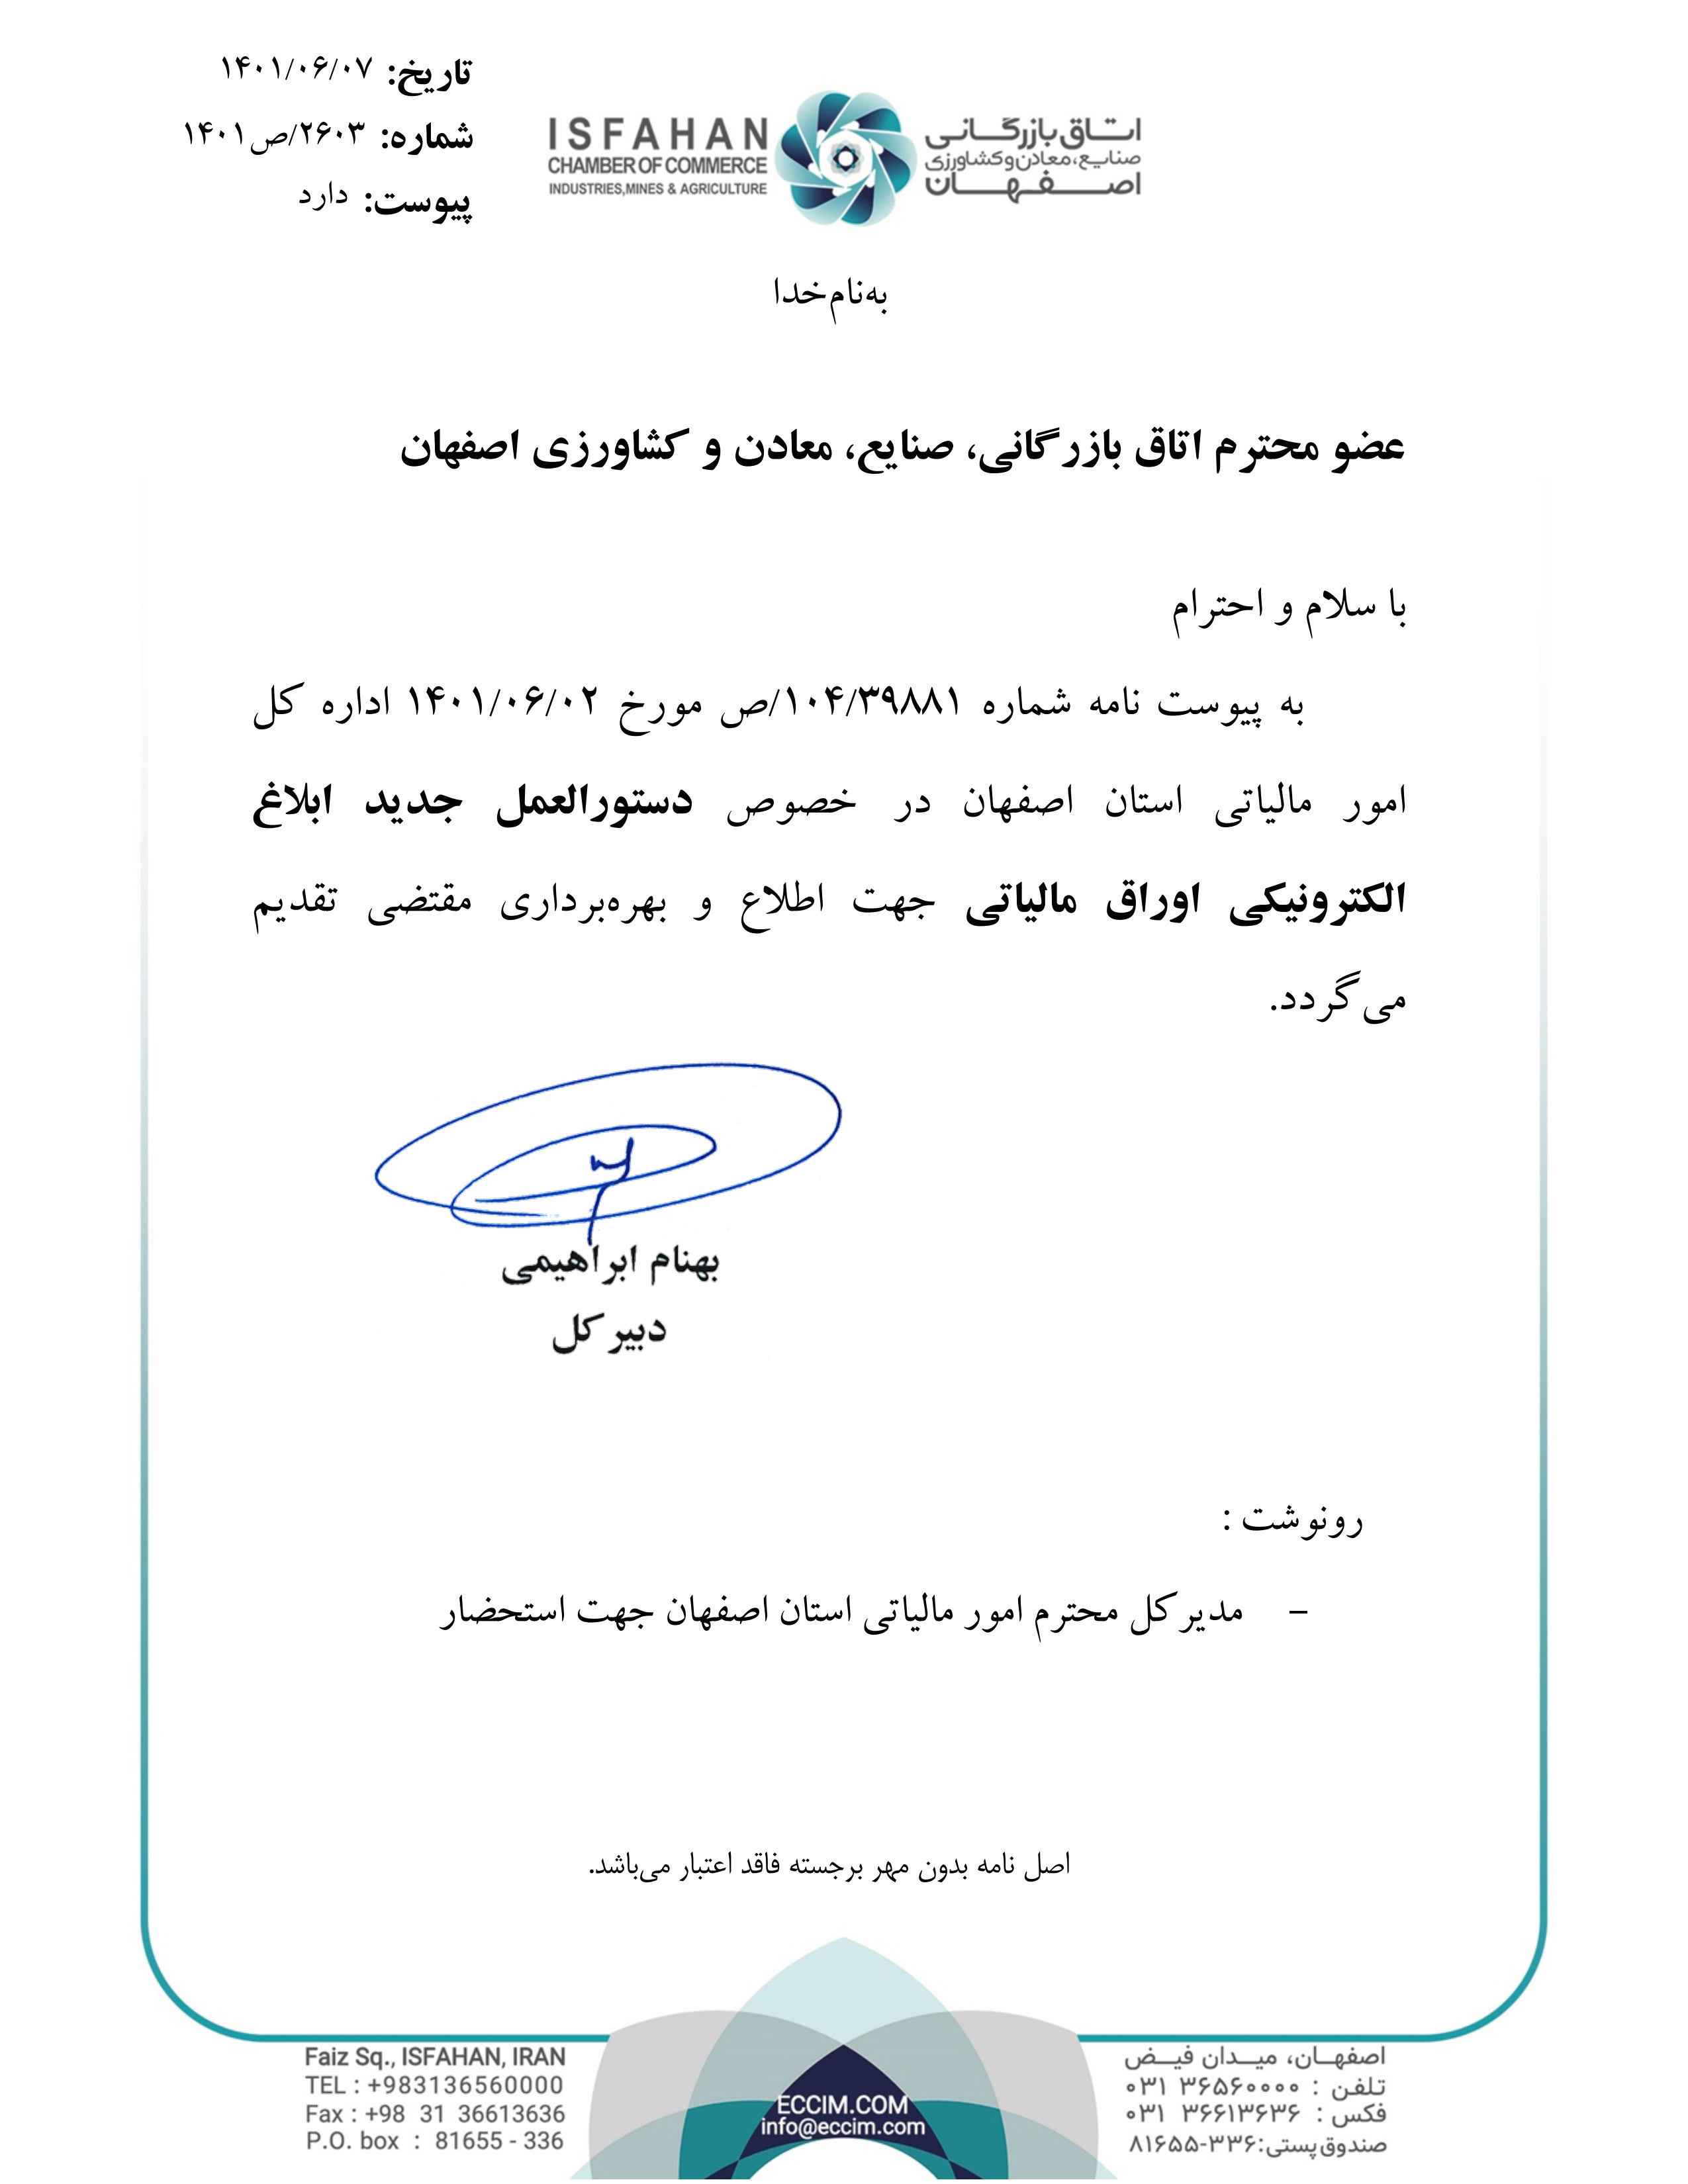 تاریخ: ۱۴۰۱/۰۶/۰۷
شماره: ۲۶۰۳/ص۱۴۰۱
پیوست: دارد
ISFAHAN
CHAMBER OF COMMERCE
INDUSTRIES,MINES & AGRICULTURE
اتاق بازرگانی
صنایع، معادن و کشاورزی
اصفهان
به‌نام‌خدا
عضو محترم اتاق بازرگانی، صنایع، معادن و کشاورزی اصفهان
با سلام و احترام
به پیوست نامه شماره ۱۰۴/۳۹۸۸۱/ص مورخ ۱۴۰۱/۰۶/۰۲ اداره کل
امور مالیاتی استان اصفهان در خصوص دستورالعمل جدید ابلاغ
الکترونیکی اوراق مالیاتی جهت اطلاع و بهره‌برداری مقتضی تقدیم
می‌گردد.
بهنام ابراهیمی
دبیر کل
رونوشت :
- مدیر کل محترم امور مالیاتی استان اصفهان جهت استحضار
اصل نامه بدون مهر برجسته فاقد اعتبار می‌باشد.
Faiz Sq., ISFAHAN, IRAN
TEL : +983136560000
Fax : +98 31 36613636
P.O. box : 81655 - 336
ECCIM.COM
info@eccim.com
اصفهان، میدان فیض
تلفن : ۳۶۵۶۰۰۰۰ ۰۳۱
فکس : ۳۶۶۱۳۶۳۶ ۰۳۱
صندوق پستی:۳۳۶-۸۱۶۵۵